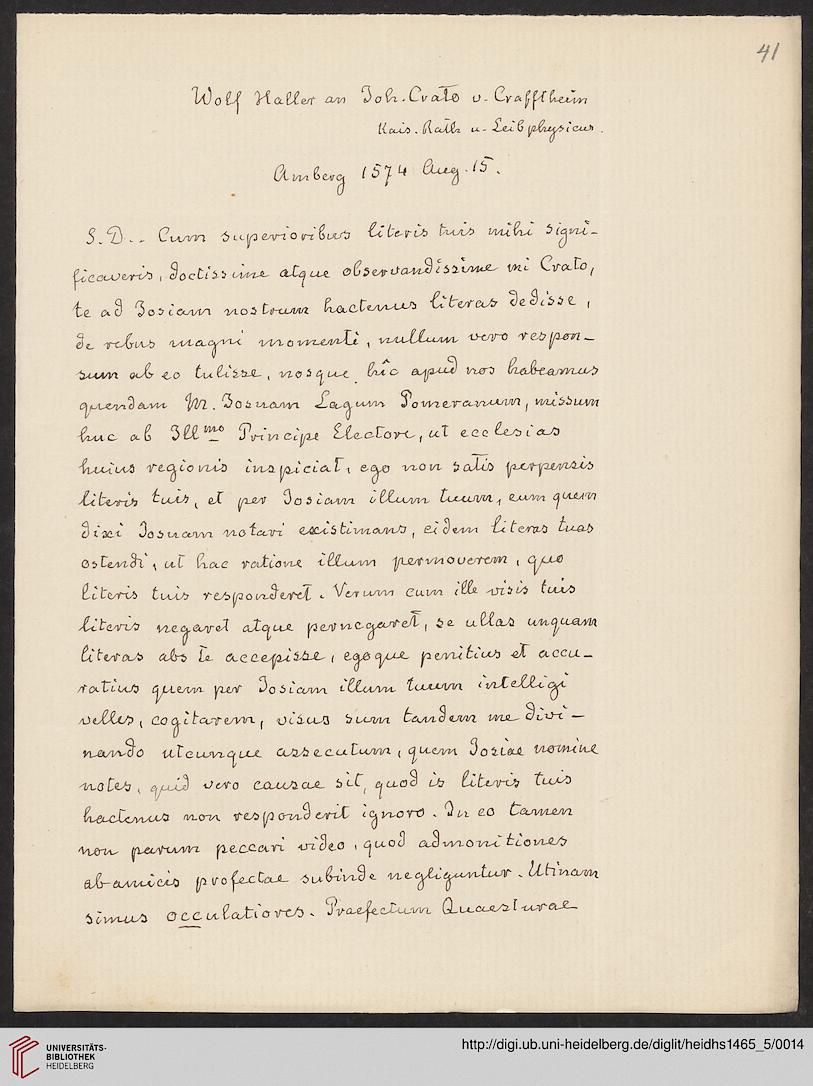 41
Wolf Haller an Joh. Crato v. Crafftheim
Kais. Rath u. Leibphysicus.
Amberg 1574 Aug. 15.
S. D.. Cum superioribus literis tuis mihi signi-
ficaveris, doctissime atque observandissime mi Crato,
te ad Josiam nostrum hactenus literas dedisse,
de rebus magni momenti, nullum vero respon-
sum ab eo tulisse, nosque hîc apud nos habeamus
quendam M. Josuam Lagum Pomeranum, missum
huc ab Ill mo Principe Electore, ut ecclesias
huius regionis inspiciat, ego non satis perpensis
literis tuis, et per Josiam illum tuum, eum quem
dixi Josuam notari existimans, eidem literas tuas
ostendi, ut hac ratione illum permoverem, quo
literis tuis responderet. Verum cum ille visis tuis
literis negaret atque pernegaret, se ullas unquam
literas abs te accepisse, egoque penitius et accu-
ratius quem per Josiam illum tuum intelligi
velles, cogitarem, visus sum tandem me divi-
nando utcunque assecutum, quem Josiae nomine
notes, quid vero causae sit, quod is literis tuis
hactenus non responderit ignoro. In eo tamen
non parum peccari video, quod admonitiones
ab amicis profectae subinde negliguntur. Utinam
simus occulatiores. Praefectum Quaesturae
UNIVERSITÄTS-
BIBLIOTHEK
HEIDELBERG
http://digi.ub.uni-heidelberg.de/diglit/heidhs1465_5/0014